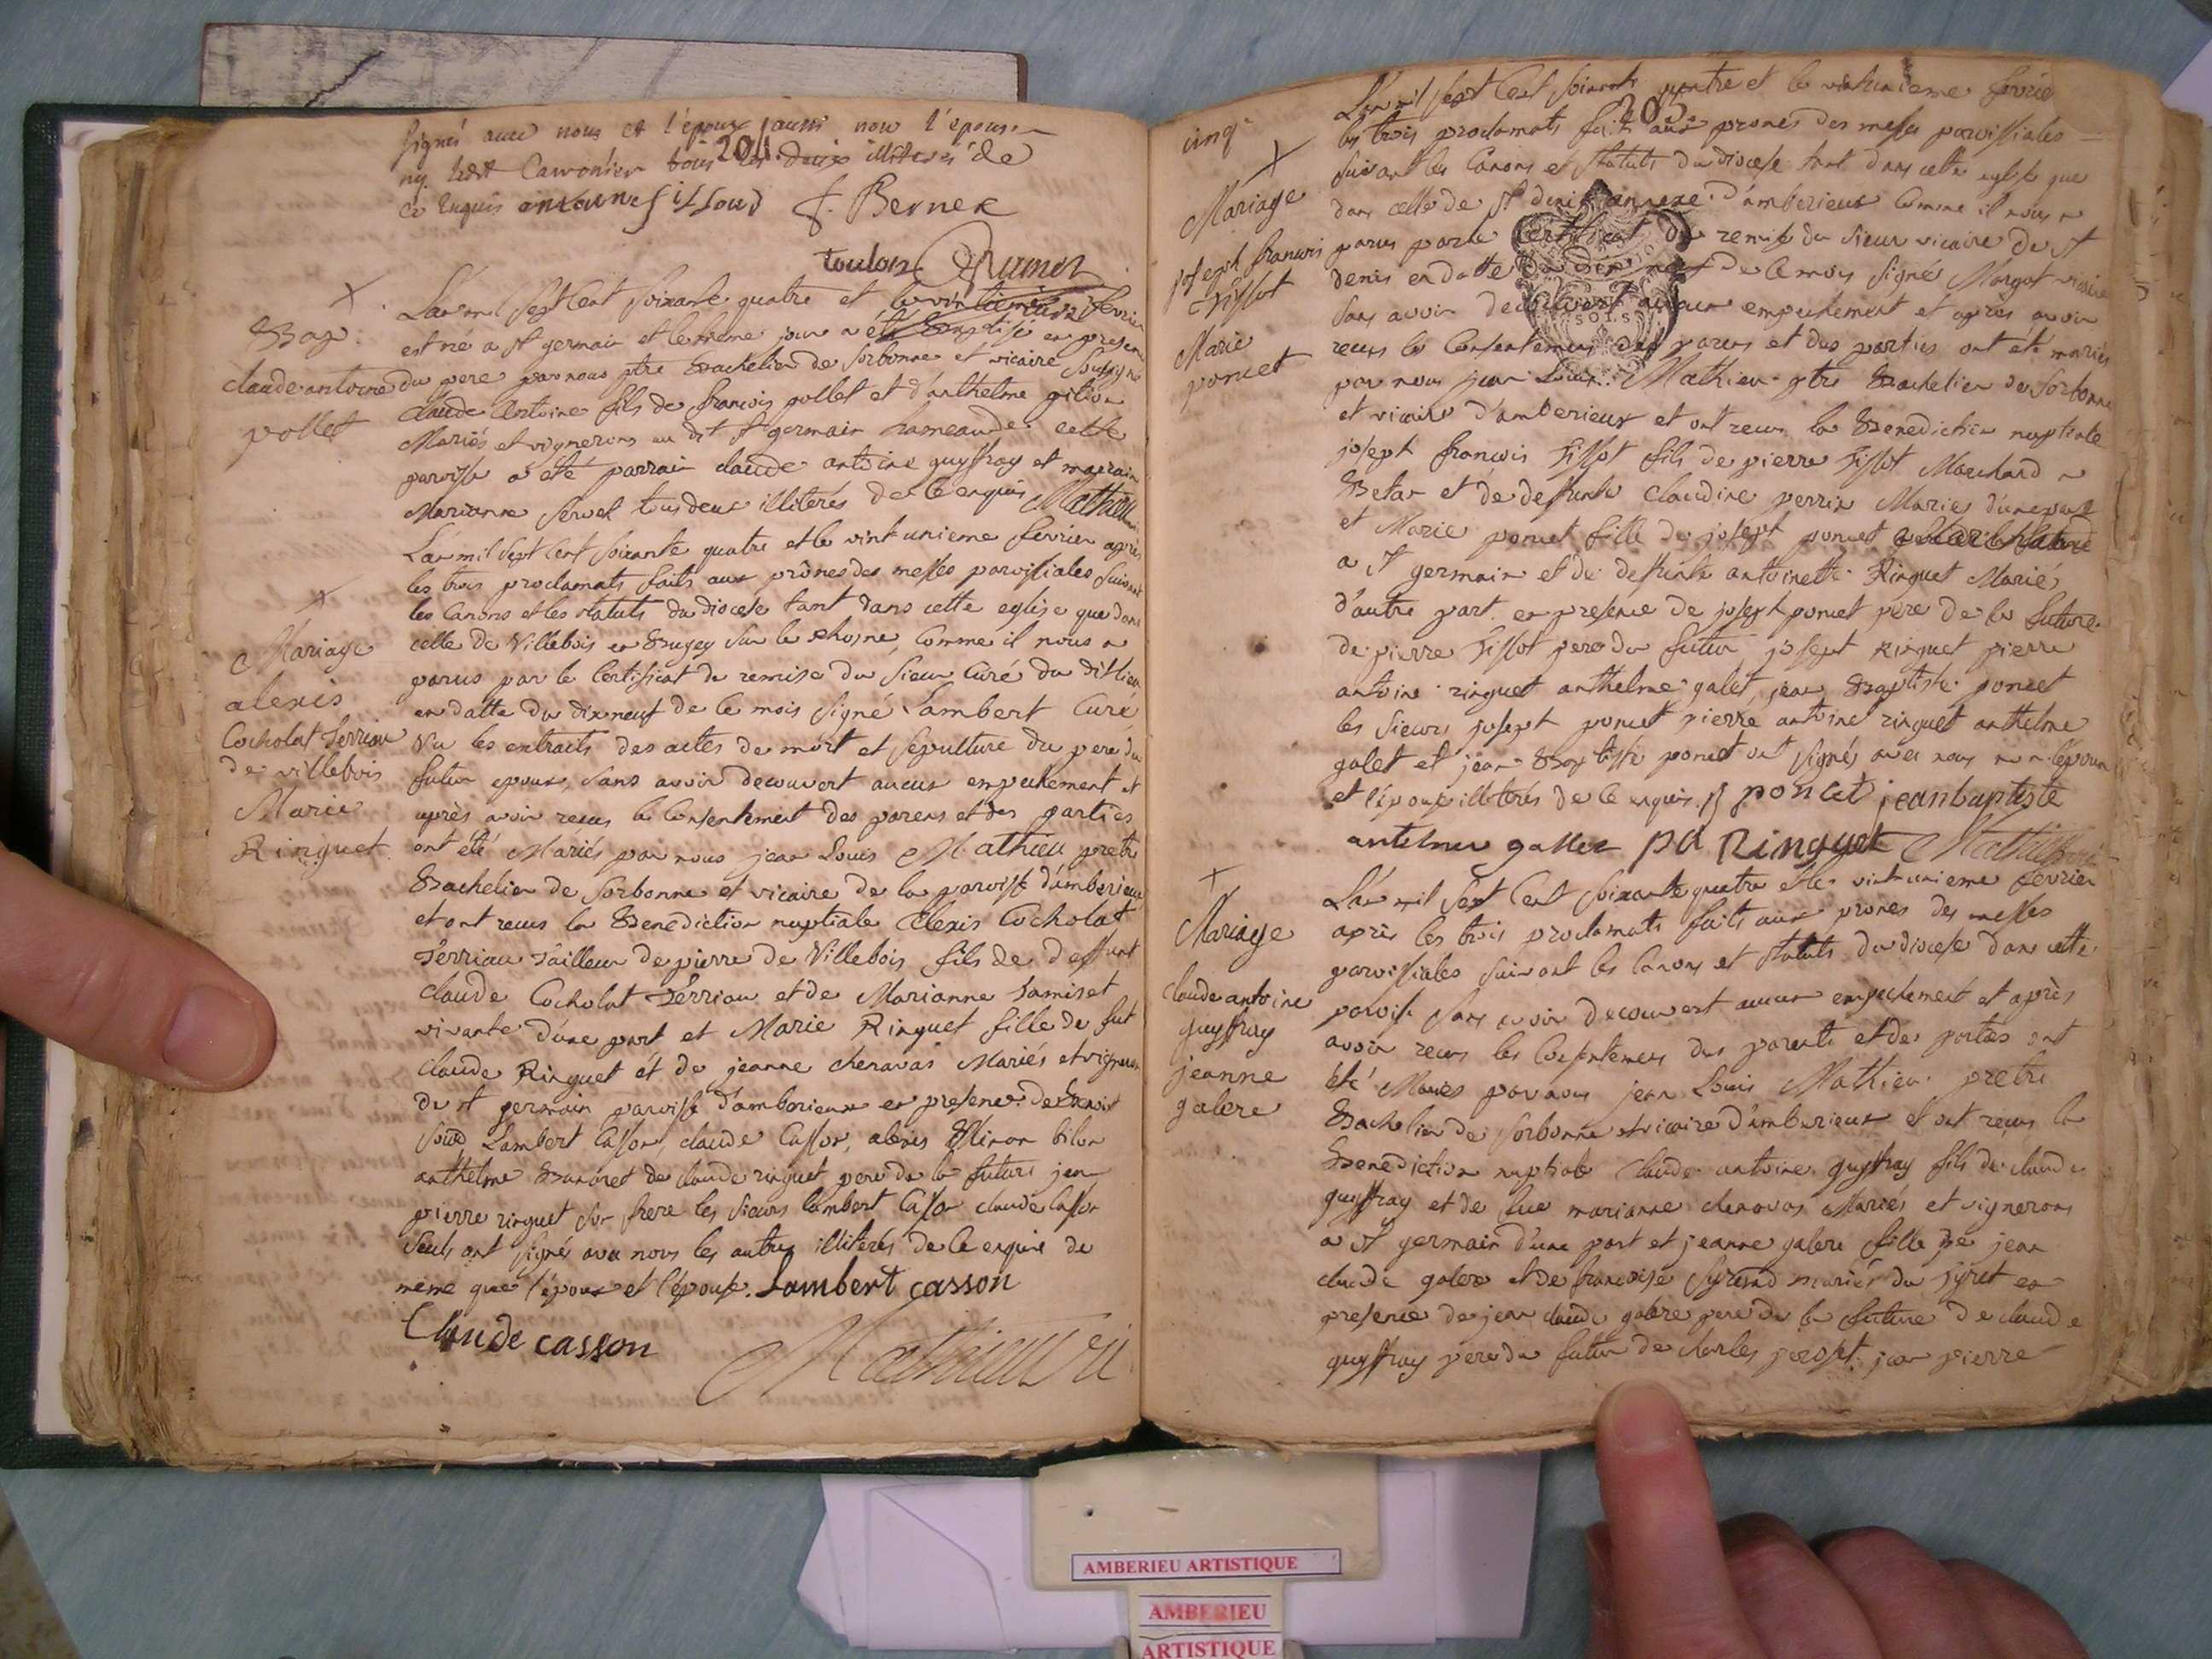 signés avec nous et l'époux aussi non l'epouse
204
ce enquis antoine sillous J. Bernex
toulon
X
L'an mil sept cent soixante quatre et fevrier
Bap.
est né a st germain et le meme jour a été Baptisé en presence
claude antoine
du pere par nous ptre Bachelier de sorbonne et vicaire soussigné
pollet
claude antoine fils de francois pollet et d'anthelme
Mariés et vignerons au dit st germain hameau de cette
paroisse a été parrain claude antoine guyffray et marraine
Marianne servel tous deux illiterés de ce enquis Mathieu
L'an mil sept cent soixante quatre et le vint unieme fevrier après
les trois proclamats faits aux prônes des messes paroissiales suivant
X
les canons et les statuts du diocese tant dans cette eglise que dans
Mariage
celle de Villebois en Bugey sur le rhosne, comme il nous a
alexis
parus par le certificat de remise du sieur curé du dit lieu
Cocholat Terriau
en datte du dixneuf de ce mois signé Lambert Curé
de villebois
Vu les extraits des actes de mort et sepulture du pere du
Marie
futur epoux, sans avoir decouvert aucun empechement et
Ringuet
après avoir recus le consentement des parens et des parties
ont été Mariés par nous jean Louis Mathieu pretre
Bachelier de sorbonne et vicaire de la paroisse d'amberieux
et ont recus la Benediction nuptiale alexis Cocholat
Terriau tailleur de pierre de Villebois fils de deffunt
claude Cocholat Terriau et de Marianne
vivante d'une part et Marie Ringuet fille de fut
claude Ringuet et de jeanne chenavas Mariés et vignerons
de st germain paroisse d'amberieux en presence de Benoit
Lambert Casson, claude Casson, alexis
anthelme de claude ringuet pere de la future jean
pierre ringuet son frere les sieurs lambert Casson claude Casson
seuls ont signés avec nous les autres illiterés de ce enquis de
meme que l'époux et l'épouse. Lambert casson
Claude casson
Mathieu vic
cinq
L'an mil sept cent soixante quatre et le vintunieme fevrier
205
les trois proclamats faits aux pronés des messes paroissiales
X
suivant les canons et statuts du diocese tant dans cette eglise que
Mariage
dans celle de st denis annexe d'amberieux comme il nous a
joseph francois
parus par le certificat de remise du sieur vicaire de st
Tissot
denis en datte du dix neuf de ce mois signé Margot vicaire
Marie
sans avoir decouvert aucun empechement et après avoir
SOLS
poncet
recus les consentemens des parens et des parties ont été mariés
par nous jean Louis Mathieu ptre Bachelier de sorbonne
et vicaire d'amberieux et ont recus la Benediction nuptiale
joseph francois Tissot fils de pierre Tissot Marchand a
Betan et de deffunte claudine perrin Marié d'une part
et Marie poncet fille de joseph poncet
a st germain et de deffunte antoinette Ringuet Mariés
d'autre part en presence de joseph poncet pere de la future
de pierre Tissot pere du futur joseph Ringuet pierre
antoine ringuet anthelme galet, jean Baptiste poncet
les sieurs joseph poncet pierre antoine ringuet anthelme
galet et jean Baptiste poncet ont signés avec nous non l'époux
et l'épouse illiterés de ce enquis. J poncet jeanbaptiste
antelme gallet pA Ringuet Mathieu
X
L'an mil sept cent soixante quatre et le vintunieme fevrier
Mariage
après les trois proclamats faits aux prones des messes
paroissiales suivant les canons et statuts du diocese dans cette
claude antoine
paroisse sans avoir decouvert aucun empechement et après
guyffray
avoir recus les consentemens des parents et des parties ont
jeanne
été Mariés par nous jean Louis Mathieu pretre
galere
Bachelier de sorbonne et vicaire d'amberieux et ont recus la
Benediction nuptiale claude antoine guyffray fils de claude
guyffray et de fue marianne chenavas Mariés et vignerons
a st germain d'une part et jeanne galere fille de jean
claude galere et de francoise mariés du en
presence de jean claude galere pere de la future de claude
guyffray pere du futur de charles jean pierre
AMBERIEU ARTISTIQUE
AMBERIEU
ARTISTIQUE